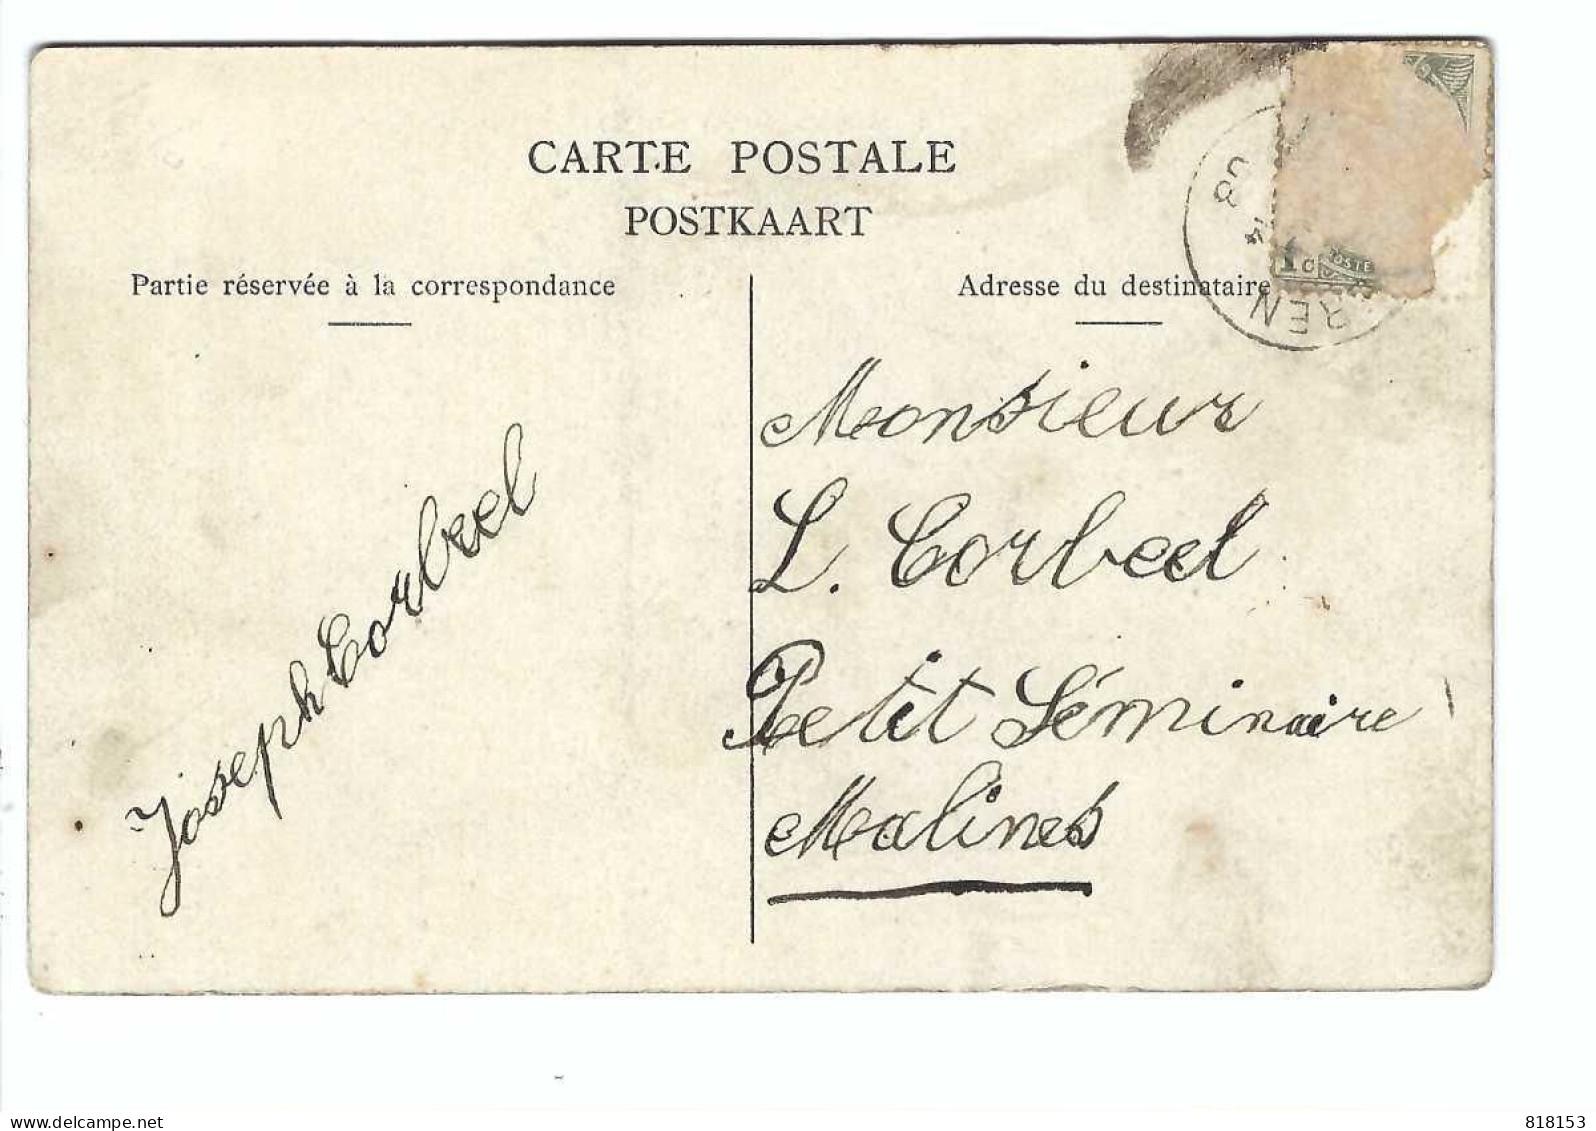 CARTE POSTALE
POSTKAART
Partie réservée à la correspondance
Adresse du destinataire
08
14
REN
1c
POSTE
Monsieur
L. Corbeel
Petit Séminaire
Malines
Joseph Corbeel
www.delcampe.net
the_grebber
818153